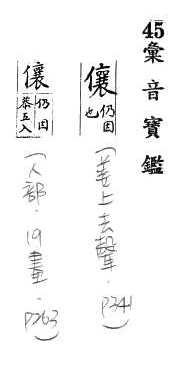 45彙音寶鑑
儴 仍因也
(姜上去聲.P241)
儴 仍因 恭五入
(人部.19畫.P263)